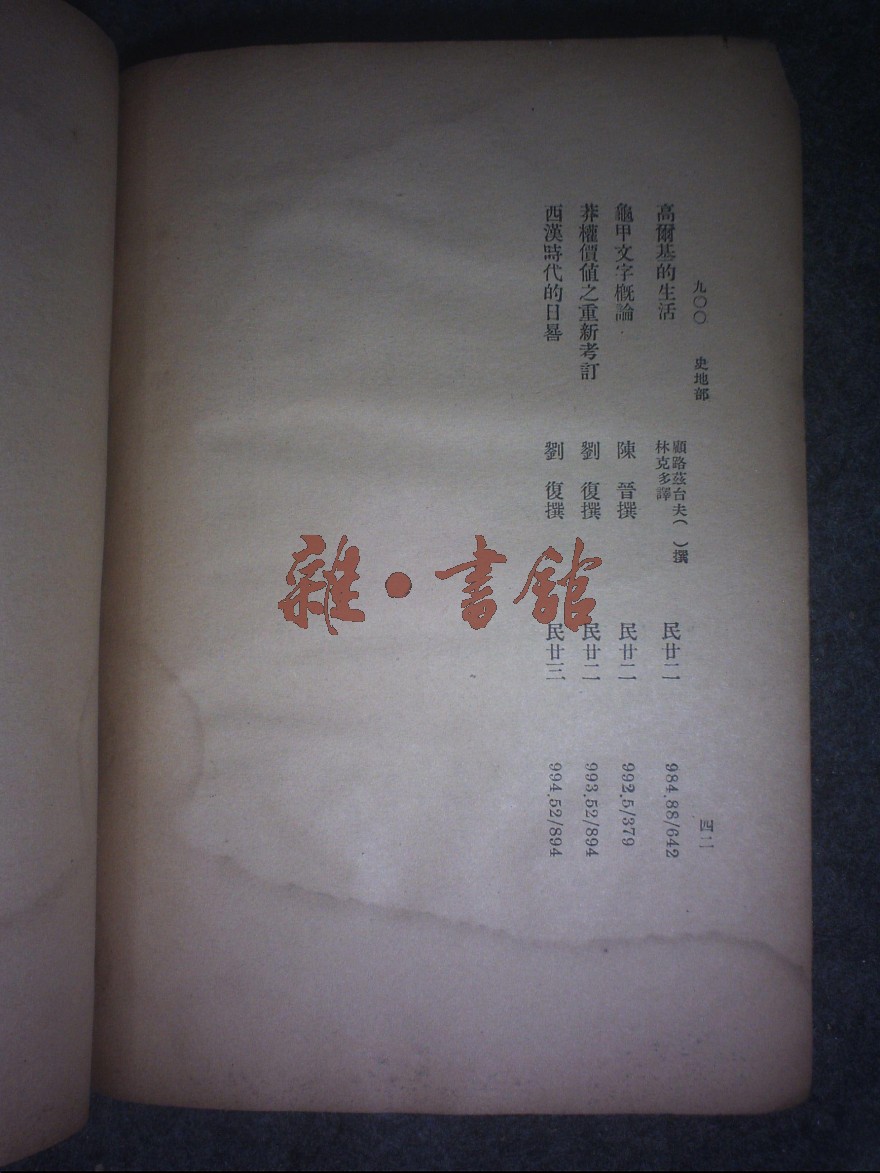 九〇〇 史地部 四二
高爾基的生活 顧路茲台夫( )撰 林克多譯 民廿二 984.88/642
龜甲文字概論 陳晉撰 民廿二 992.5/379
莽權價值之重新考訂 劉復撰 民廿二 993.52/894
西漢時代的日晷 劉復撰 民廿三 994.52/894
雜·書館